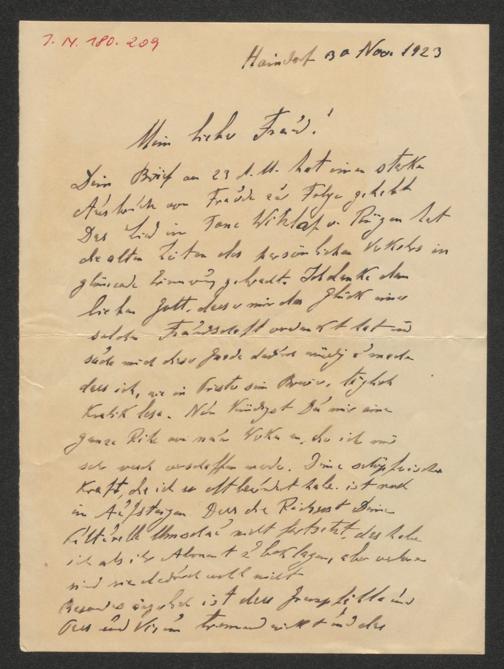 I. N. 180.209
Haindorf 30 Nov. 1923
Mein lieber Freund!
Dein Brief vom 23 d. M. hat einen starken
Ausbruch von Freude zur Folge gehabt
Das Lied im Tone Witzlaf v. Rügen hat
die alten Zeiten des persönlichen Verkehrs in
glänzende Erinnerung gebracht. Ich danke dem
lieben Gott, dass er mir das Glück einer
solchen Freundschaft hat und
suche mich dieser Gnade dadurch würdig zu machen
dass ich, wie in sein Brevier, täglich
Kralik lese. Nun kündigst Du mir eine
ganze Reihe von neuen Werken an, die ich mir
sehr rasch verschaffen werde. Deine schöpferische
Kraft, die ich so oft bewundert habe ist noch
im Aufsteigen. Dass die Reichspost Deine
Kulturelle Umschau nicht fortsetzt, das habe
ich als ihr Abonnent zu beklagen, aber
sind sie dadurch wohl nicht
Besonders ist dass
und